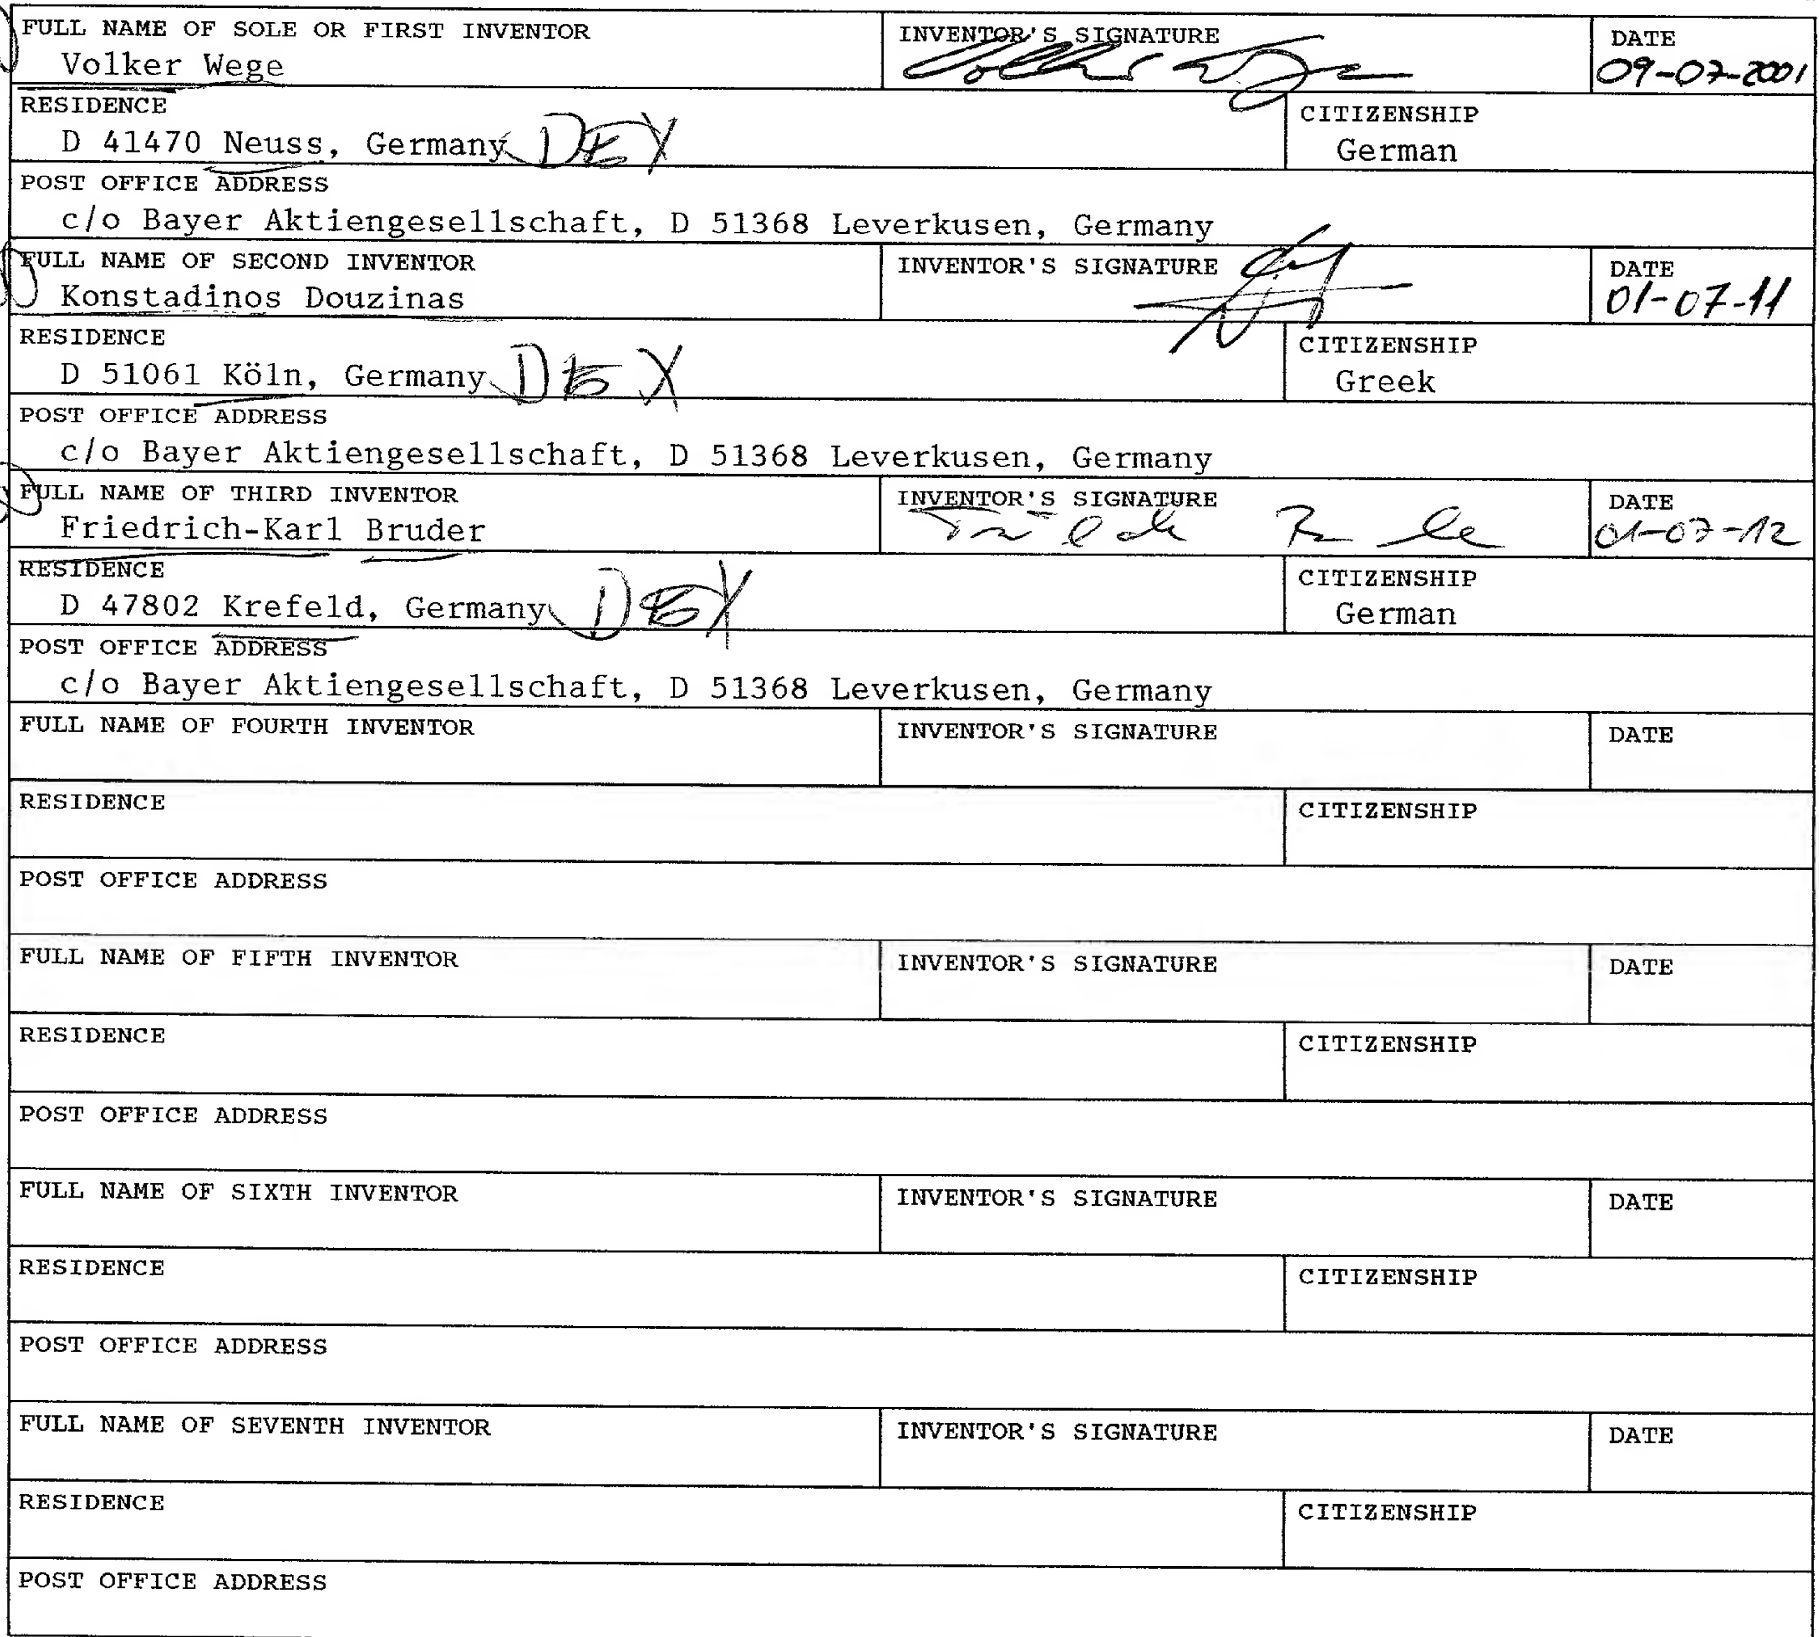 FULL NAME OF SOLE OR FIRST INVENTOR INVENTOR'S SIGNATURE DATE
Volker Wege Volker Wege 09-07-2001
RESIDENCE CITIZENSHIP
D 41470 Neuss, Germany DEX German
POST OFFICE ADDRESS
c/o Bayer Aktiengesellschaft, D 51368 Leverkusen, Germany
FULL NAME OF SECOND INVENTOR INVENTOR'S SIGNATURE DATE
Konstadinos Douzinas 01-07-11
RESIDENCE CITIZENSHIP
D 51061 Köln, Germany DEX Greek
POST OFFICE ADDRESS
c/o Bayer Aktiengesellschaft, D 51368 Leverkusen, Germany
FULL NAME OF THIRD INVENTOR INVENTOR'S SIGNATURE DATE
Friedrich-Karl Bruder 01-07-12
RESIDENCE CITIZENSHIP
D 47802 Krefeld, Germany DEX German
POST OFFICE ADDRESS
c/o Bayer Aktiengesellschaft, D 51368 Leverkusen, Germany
FULL NAME OF FOURTH INVENTOR INVENTOR'S SIGNATURE DATE
RESIDENCE CITIZENSHIP
POST OFFICE ADDRESS
FULL NAME OF FIFTH INVENTOR INVENTOR'S SIGNATURE DATE
RESIDENCE CITIZENSHIP
POST OFFICE ADDRESS
FULL NAME OF SIXTH INVENTOR INVENTOR'S SIGNATURE DATE
RESIDENCE CITIZENSHIP
POST OFFICE ADDRESS
FULL NAME OF SEVENTH INVENTOR INVENTOR'S SIGNATURE DATE
RESIDENCE CITIZENSHIP
POST OFFICE ADDRESS